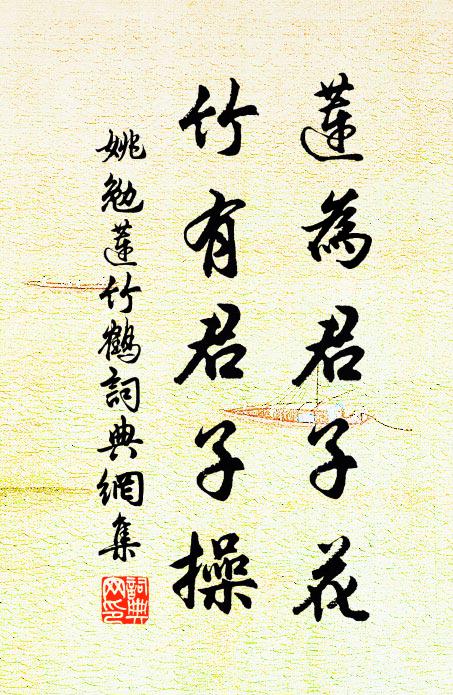 蓮為君子花
竹有君子操
姚勉蓮竹鶴詞典網集
詞典網印